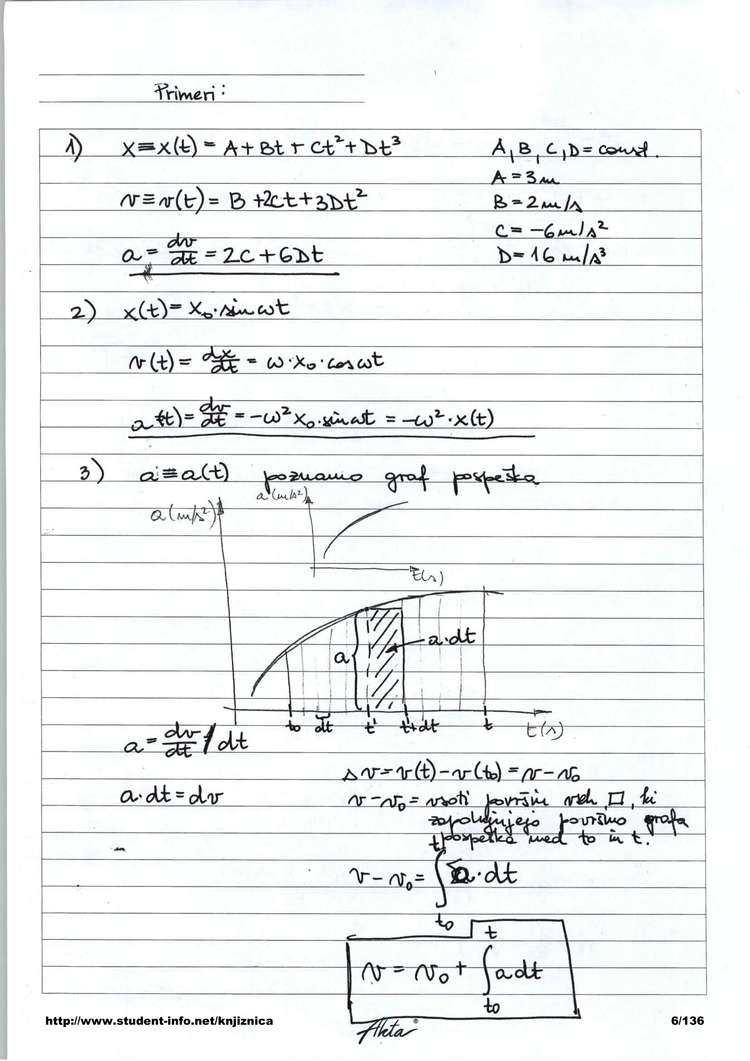 Primeri:
1) x≡x(t) = A+Bt+Ct²+Dt³
A, B, C, D = const.
A = 3m
v≡v(t) = B+2Ct+3Dt²
B = 2m/s
C = -6m/s²
a = dv/dt = 2C+6Dt
D = 16 m/s³
2) x(t) = x₀·sin ωt
v(t) = dx/dt = ω·x₀·cos ωt
a(t) = dv/dt = -ω²x₀·sin ωt = -ω²·x(t)
3) a≡a(t) poznamo graf pospeška
a(m/s²)
a(m/s²)
t(s)
a·dt
a
t₀ dt t' t'+dt t t(s)
a = dv/dt / dt
Δv = v(t) - v(t₀) = v - v₀
a·dt = dv
v - v₀ = vsoti površin vseh □, ki
zapolnjujejo površino grafa
pospeška med t₀ in t.
v - v₀ = ∫ a·dt
t
t₀
v = v₀ + ∫ a dt
t
t₀
http://www.student-info.net/knjiznica
6/136